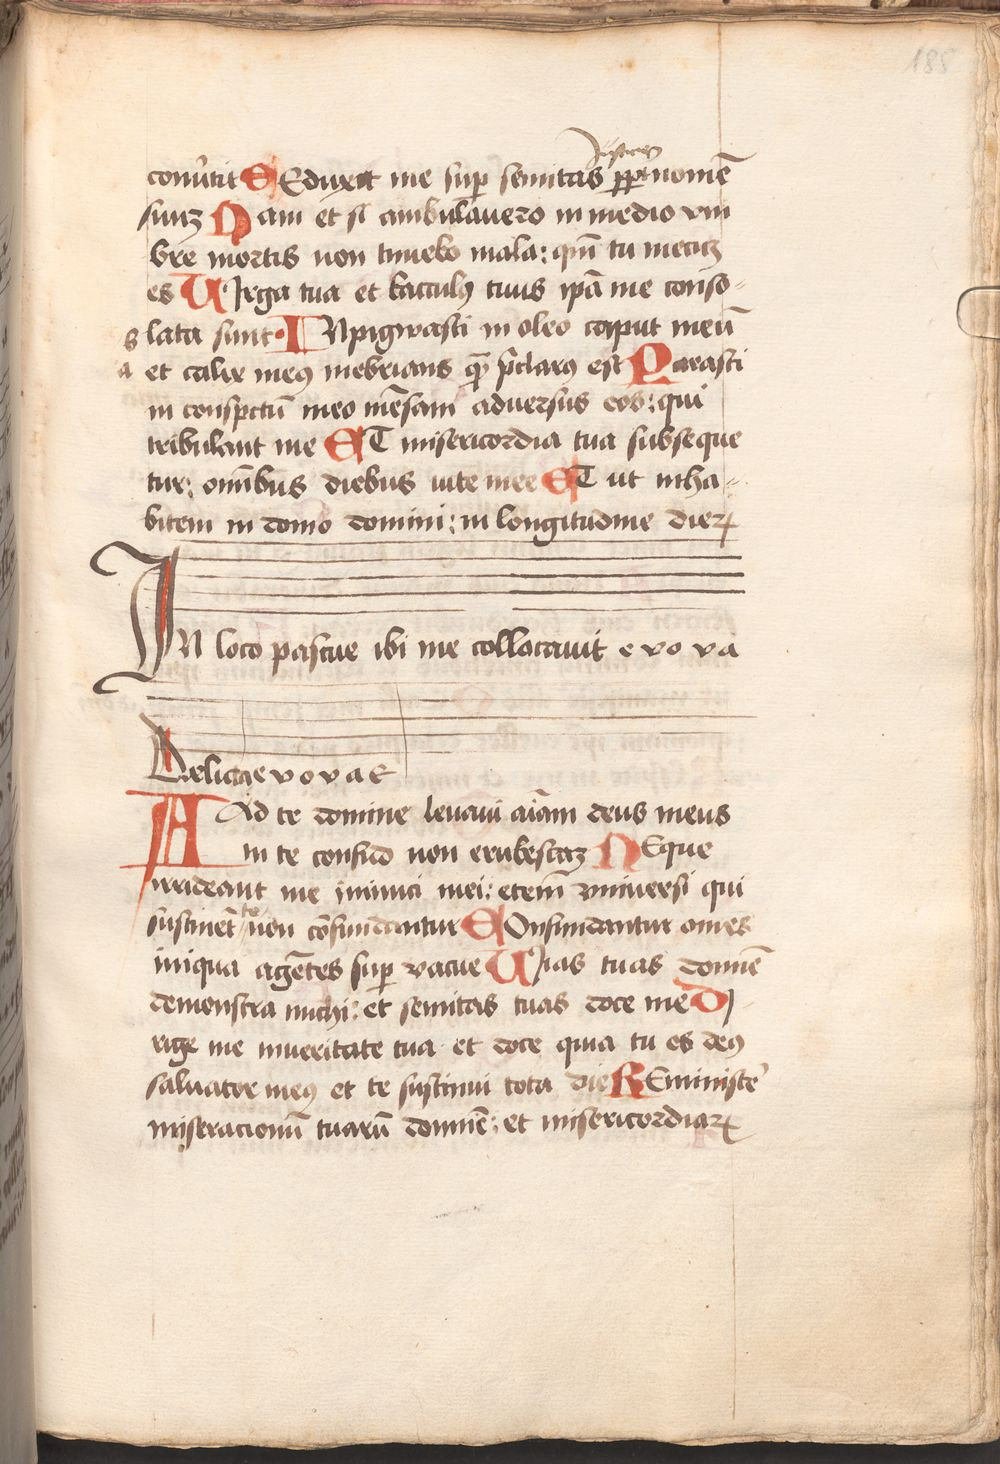 185
iusticie
conv̄tit EDuxit me sup semitas ꝓpt nomē
suuȝ Nam et si ambulavero in medio vm
bre mortis non timebo mala: qm̄ tu mecuȝ
es VIrga tua et bacculꝰ tuus ipā me conso-
s lata sunt. INpigwasti in oleo caput meū
a et calix meꝰ inebrians qm̄ p̄clarꝰ est Parasti
in conspctū meo mēsam adversus eos: qui
tribulant me ET misericordia tua subseque
tur: omībus diebus vite mee ET ut inha-
bitem in domo domini: in longitudine dieꝝ
IN loco pascue ibi me collocavit e vo va
Delicta e v o v a e
AAd te domine levavi aīam deus meus
in te confido non erubescaȝ NEque
irrideant me inimici mei: etem̄ vniversi qui
sustinēt te non cōfundantur COnfundantur omes
iniqua agētes sup vacue VIas tuas domē
demonstra michi: et semitas tuas doce me DI-
rige me in veritate tua et doce quia tu es deꝰ
salvator meꝰ et te sustinui tota die REministe᷑
miseracionū tuarū domīe: et misericordiaꝝ